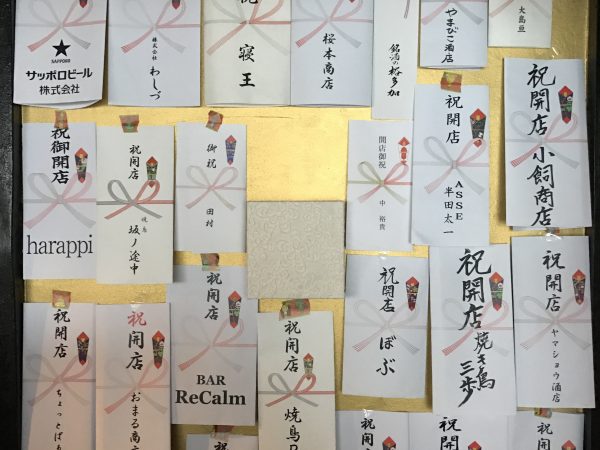 SAPPORO
サッポロビール
株式会社
株式会社
わしづ
寝王
桜本商店
銘酒の裕多加
やまびこ酒店
大島亘
祝御開店
harappi
祝開店
坂ノ途中
御祝
田村
開店御祝
中裕貴
祝開店
ASSE
半田太一
祝開店
小飼商店
祝開店
ちょっとばぁ
祝開店
おまる商店
祝開店
BAR
ReCalm
祝開店
焼鳥
祝開店
ぼぶ
祝開店
焼き鳥
三歩
祝開店
ヤマショウ酒店
祝
祝開
祝開